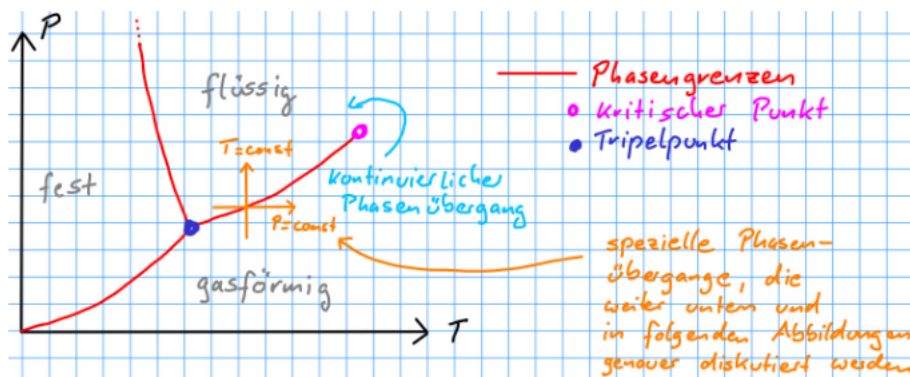 P
flüssig
T=const
fest
P=const
gasförmig
T
kontinuierlicher
Phasenübergang
Phasengrenzen
kritischer Punkt
Tripelpunkt
spezielle Phasen-
übergange, die
weiter untem und
in folgenden Abbildungen
genauer diskutiert werden